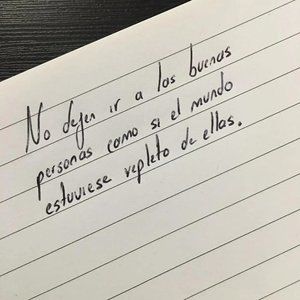 No dejen ir a las buenas
personas como si el mundo
estuviese repleto de ellas.